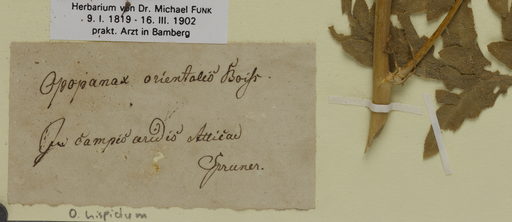 Herbarium von Dr. Michael FUNK
9. I. 1819 - 16. III. 1902
prakt. Arzt in Bamberg
Opopanax orientalis Boiss.
In campis aridis Atticae
Spruner.
O. hispidum